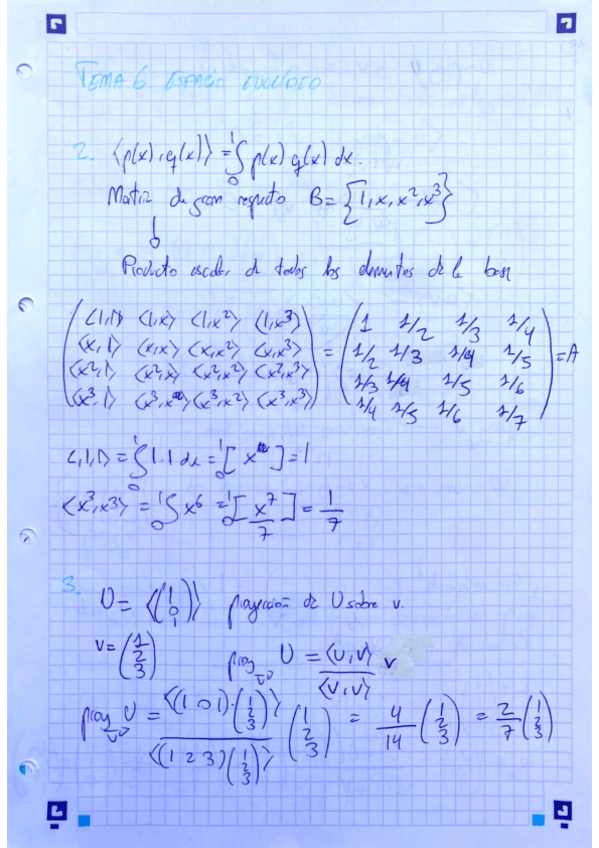 TEMA 6 ESPACIO EUCLÍDEO
2. ⟨p(x), q(x)⟩ = ∫₀¹ p(x) q(x) dx.
Matriz de gram respecto B = {1, x, x², x³}
↓
Producto escalar de todos los elementos de la base
(⟨1,1⟩ ⟨1,x⟩ ⟨1,x²⟩ ⟨1,x³⟩) = (1 1/2 1/3 1/4) = A
(⟨x,1⟩ ⟨x,x⟩ ⟨x,x²⟩ ⟨x,x³⟩) (1/2 1/3 1/4 1/5)
(⟨x²,1⟩ ⟨x²,x⟩ ⟨x²,x²⟩ ⟨x²,x³⟩) (1/3 1/4 1/5 1/6)
(⟨x³,1⟩ ⟨x³,x⟩ ⟨x³,x²⟩ ⟨x³,x³⟩) (1/4 1/5 1/6 1/7)
⟨1,1⟩ = ∫₀¹ 1·1 dx = ₀¹[x] = 1
⟨x³,x³⟩ = ₀¹∫ x⁶ = ₀¹[x⁷/7] = 1/7
3.
U = ⟨(1 0 1)⟩ proyección de U sobre v.
v = (1 2 3) proy_v U = ⟨U,v⟩/⟨v,v⟩ v
proy_v U = ⟨(1 0 1)·(1 2 3)⟩/⟨(1 2 3)(1 2 3)⟩ (1 2 3) = 4/14 (1 2 3) = 2/7 (1 2 3)